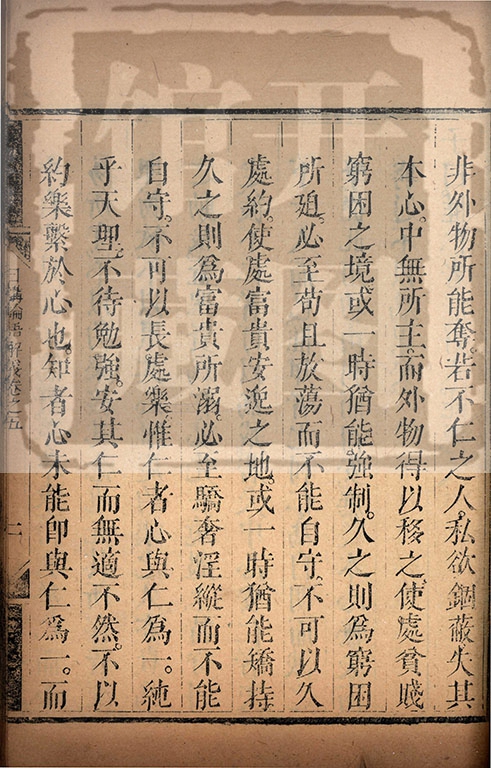 非外物所能奪。若不仁之人。私欲錮蔽失其
本心。中無所主。而外物得以移之。使處貧賤
窮困之境。或一時猶能。強制。久之則為窮困
所廹。必至苟且放蕩而不能自守。不可以久
處約。使處富貴安逸之地。或一時猶能矯持
久之則為富貴所溺。必至驕奢淫縱而不能
自守。不可以長處樂。惟仁者心與仁為一。純
乎天理。不待勉強。安其仁而無適不然。不以
約樂繫於心也。知者心未能卽與仁為一。而
日講論語解義卷之五
二